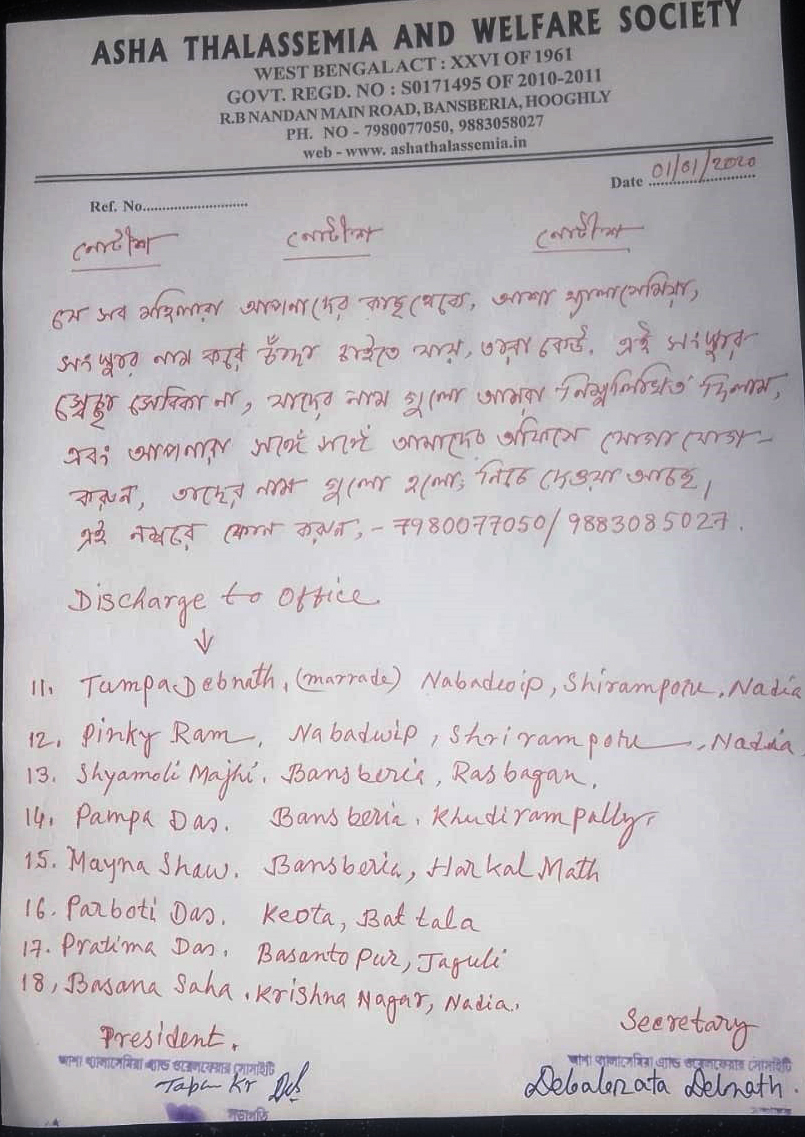 ASHA THALASSEMIA AND WELFARE SOCIETY
WEST BENGAL ACT : XXVI OF 1961
GOVT. REGD. NO : S0171495 OF 2010-2011
R.B NANDAN MAIN ROAD, BANSBERIA, HOOGHLY
PH. NO - 7980077050, 9883058027
web - www. ashathalassemia.in
Ref. No............................ Date 01/01/2020
নোটীশ নোটীশ নোটীশ
যে সব মহিলারা আপনাদের কাছ থেকে, আশা থ্যালাসেমিয়া,
সংস্থার নাম করে চাঁদা চাইতে যায়, তারা কেউ. এই সংস্থার
সেবিকা না, যাদের নাম গুলো আমরা নিম্নলিখিত দিলাম,
এবং আপনারা সঙ্গে সঙ্গে আমাদের অফিসে যোগাযোগ-
করুন, তাদের নাম গুলো হলো; নিচে দেওয়া আছে,
এই নম্বরে ফোন করুন,- 7980077050/9883085027.
Discharge to Office
↓
11. Tampa Debnath, (marrade) Nabadwip, Shirampore, Nadia
12. Pinky Ram, Nabadwip, Shrirampore, Nadia,
13. Shyamoli Majhi. Bansberia, Rasbagan.
14. Pampa Das. Bansberia. Khudirampally.
15. Mayna Shaw. Bansberia, Harkal Math
16. Parboti Das. Keota, Battala
17. Pratima Das. Basantopur, Jaguli
18, Basana Saha. Krishna Nagar, Nadia.
President. Secretary
আশা থ্যালাসেমিয়া এ্যান্ড ওয়েলফেয়ার সোসাইটি আশা থ্যালাসেমিয়া এ্যান্ড ওয়েলফেয়ার সোসাইটি
Tapan Kr Debabrata Debnath.
সভাপতি